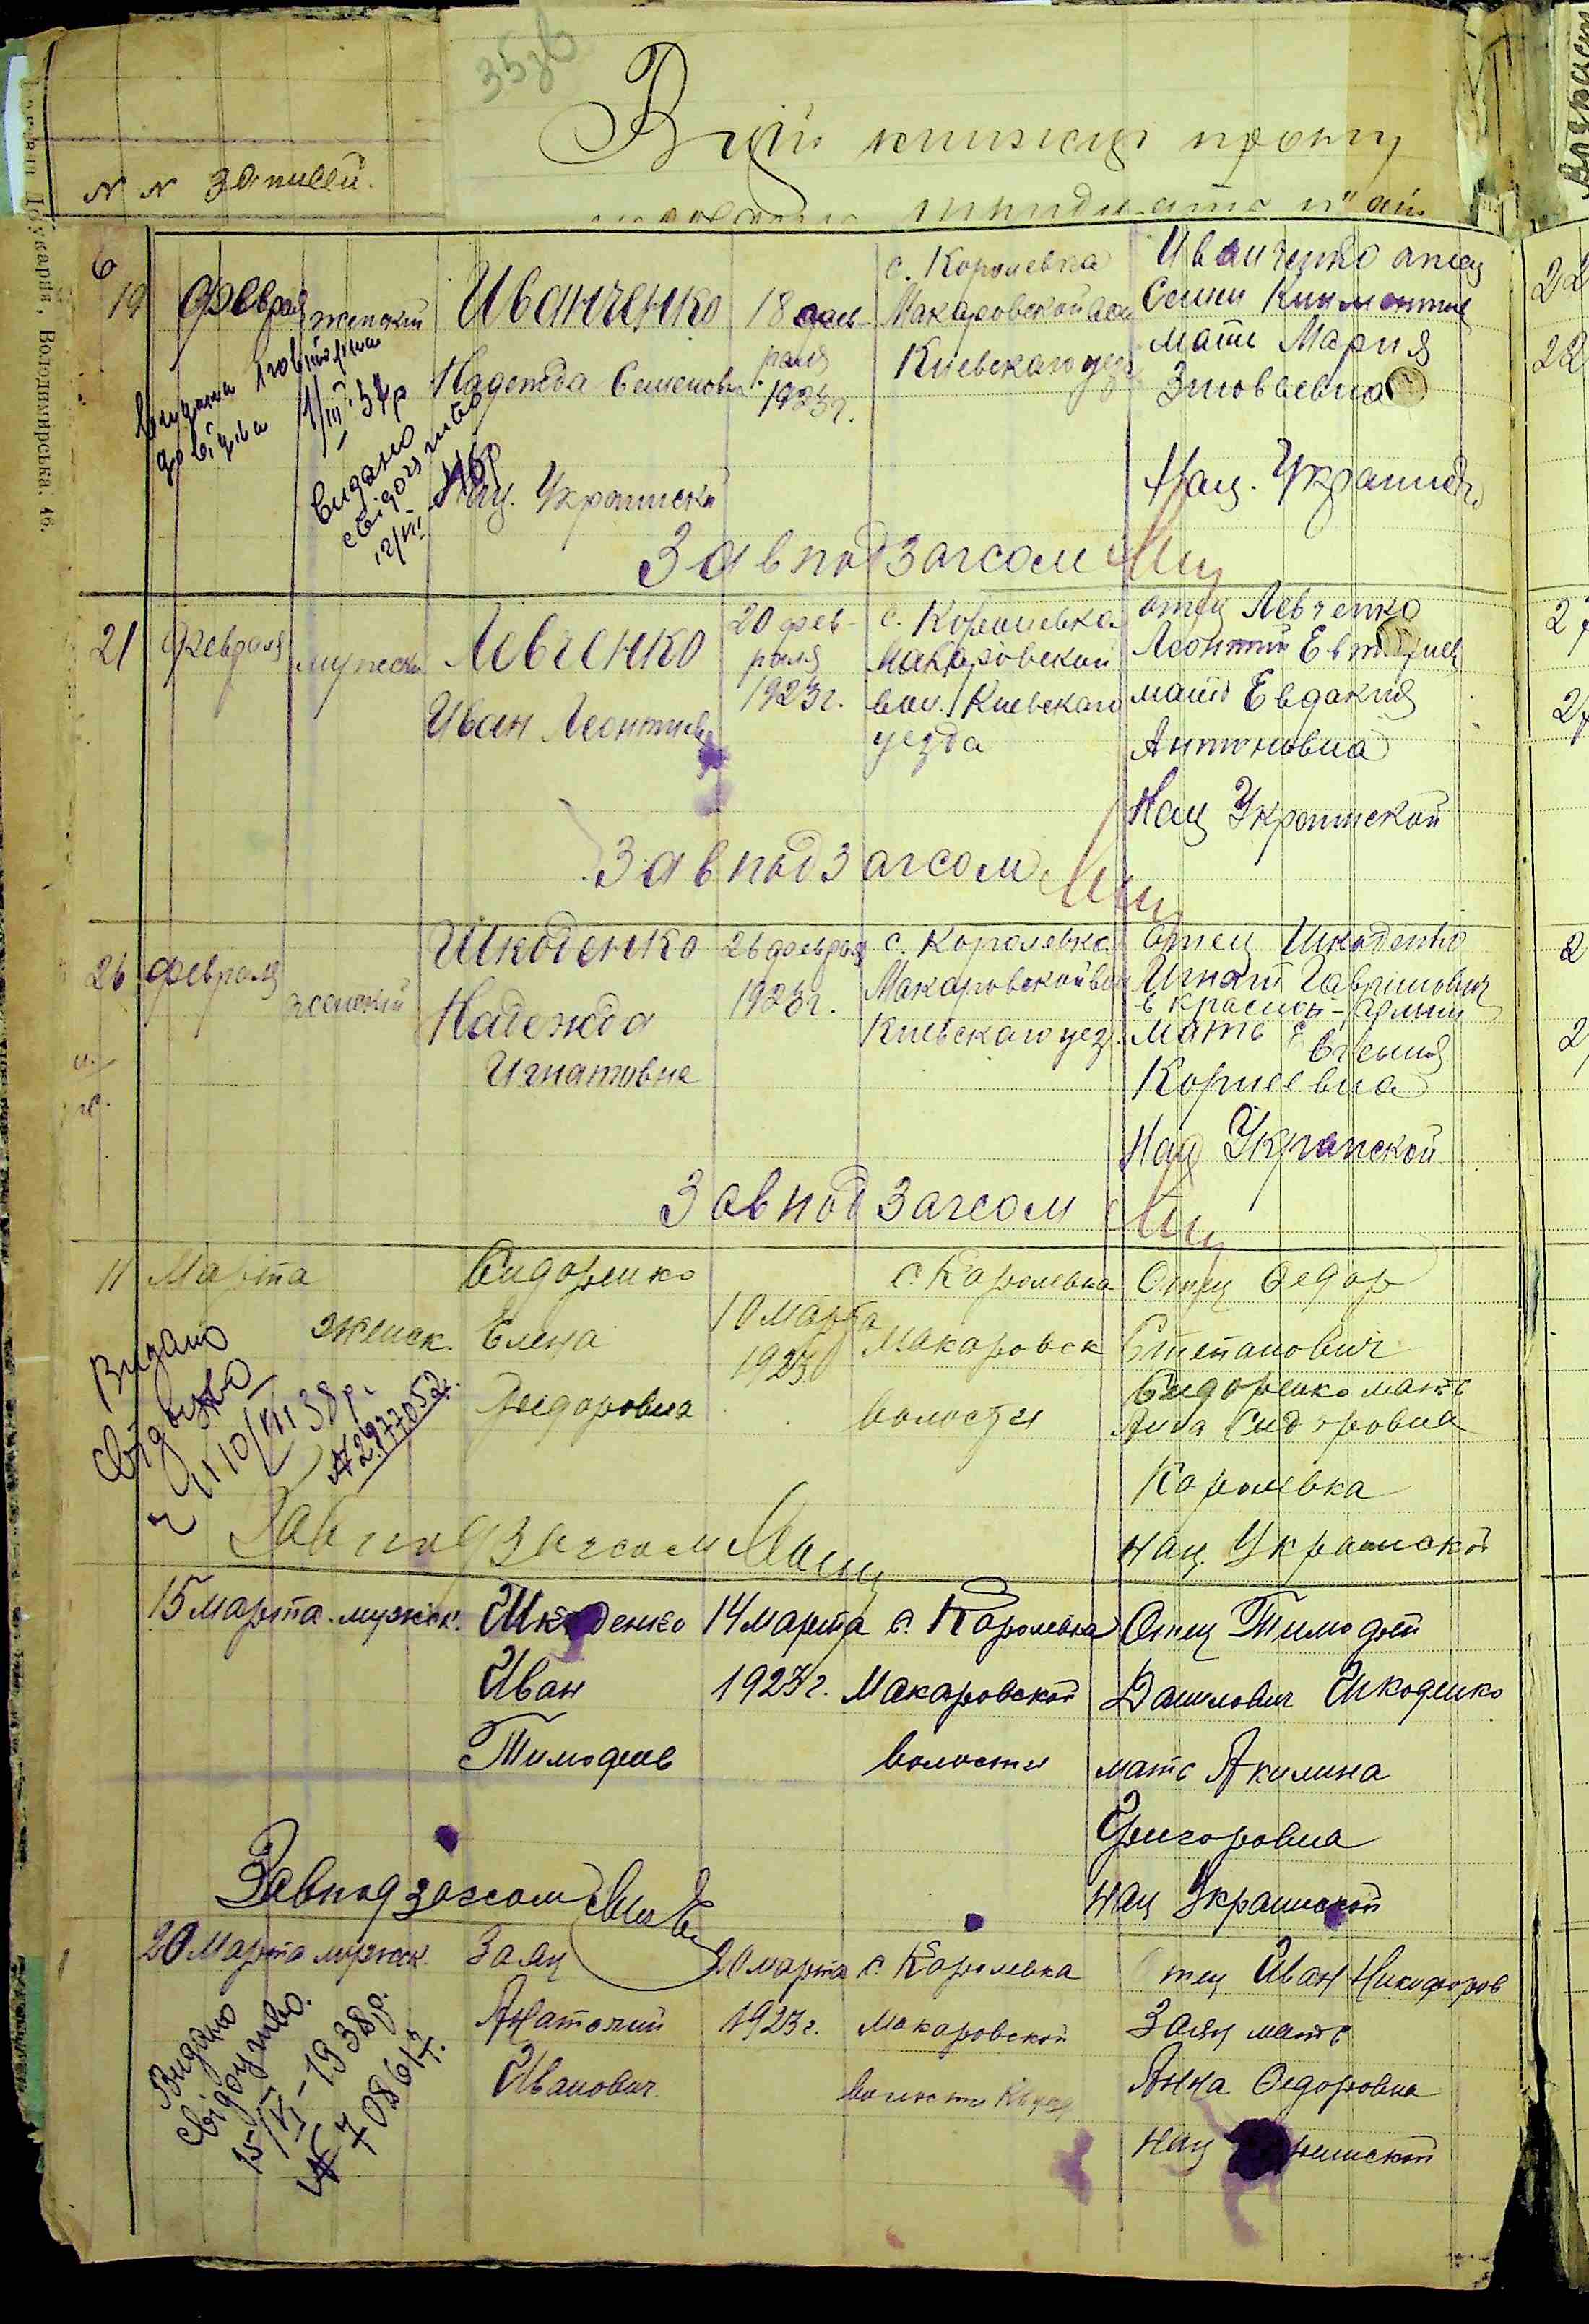 35зв
В цій книжці прошу
N N записей.
Володимирська, 46.
19 февраля
женский
Иванченко
Надежда Семеновна
Нац. Украинской
18 фев-
раля
1923 г.
с. Королевка
Макаровской вол
Киевского уез
Иванченко отец
Семен
мать Мария
Зиновьевна
Нац. Украинской
видана
довідка
1/III 34р
видано
свідоцтво
12/VII 46р
Завподзагсом
21 февраля
мужеск
Левченко
Иван Леонтиев
20 фев-
раля
1923 г.
с. Королевка
Макаровской
вол. Киевского
уезда
отец Левченко
Леонтий
мать Евдокия
Антоновна
Нац Украинской
Завподзагсом
26 февраля
женский
Шкоденко
Надежда
Игнатовна
26 февраля
1923 г.
с. Королевка
Макаровской вол
Киевского уез.
Отец Шкоденко
Игнат Гаврилович
в красной-Армии
мать Евгения
Корнеевна
Нац Украинской
Завподзагсом
11 Марта
женск.
Сидоренко
Елена
Федоровна
10 Марта
1923
с. Королевка
Макаровск
волости
Отец Федор
Степанович
Сидоренко мать
Анна Сидоровна
Королевка
нац. Украинской
Видано
свідоцтво
10/VII 38р.
№ 2977052.
Завподзагсом
15 марта мужск.
Шкоденко
Иван
Тимофеев
14 марта
1923 г.
с. Королевка
Макаровской
волости
Отец Тимофей
Данилович Шкоденко
мать Акилина
Григоровна
нац Украинской
Завподзагсом
20 Марта мужск.
Заяц
Анатолий
Иванович
20 марта
1923 г.
с. Королевка
Макаровской
волости
Отец Иван Никифоров
Заяц мать
Анна Федоровна
нац
Видано
свідоцтво.
15/VI-1938р.